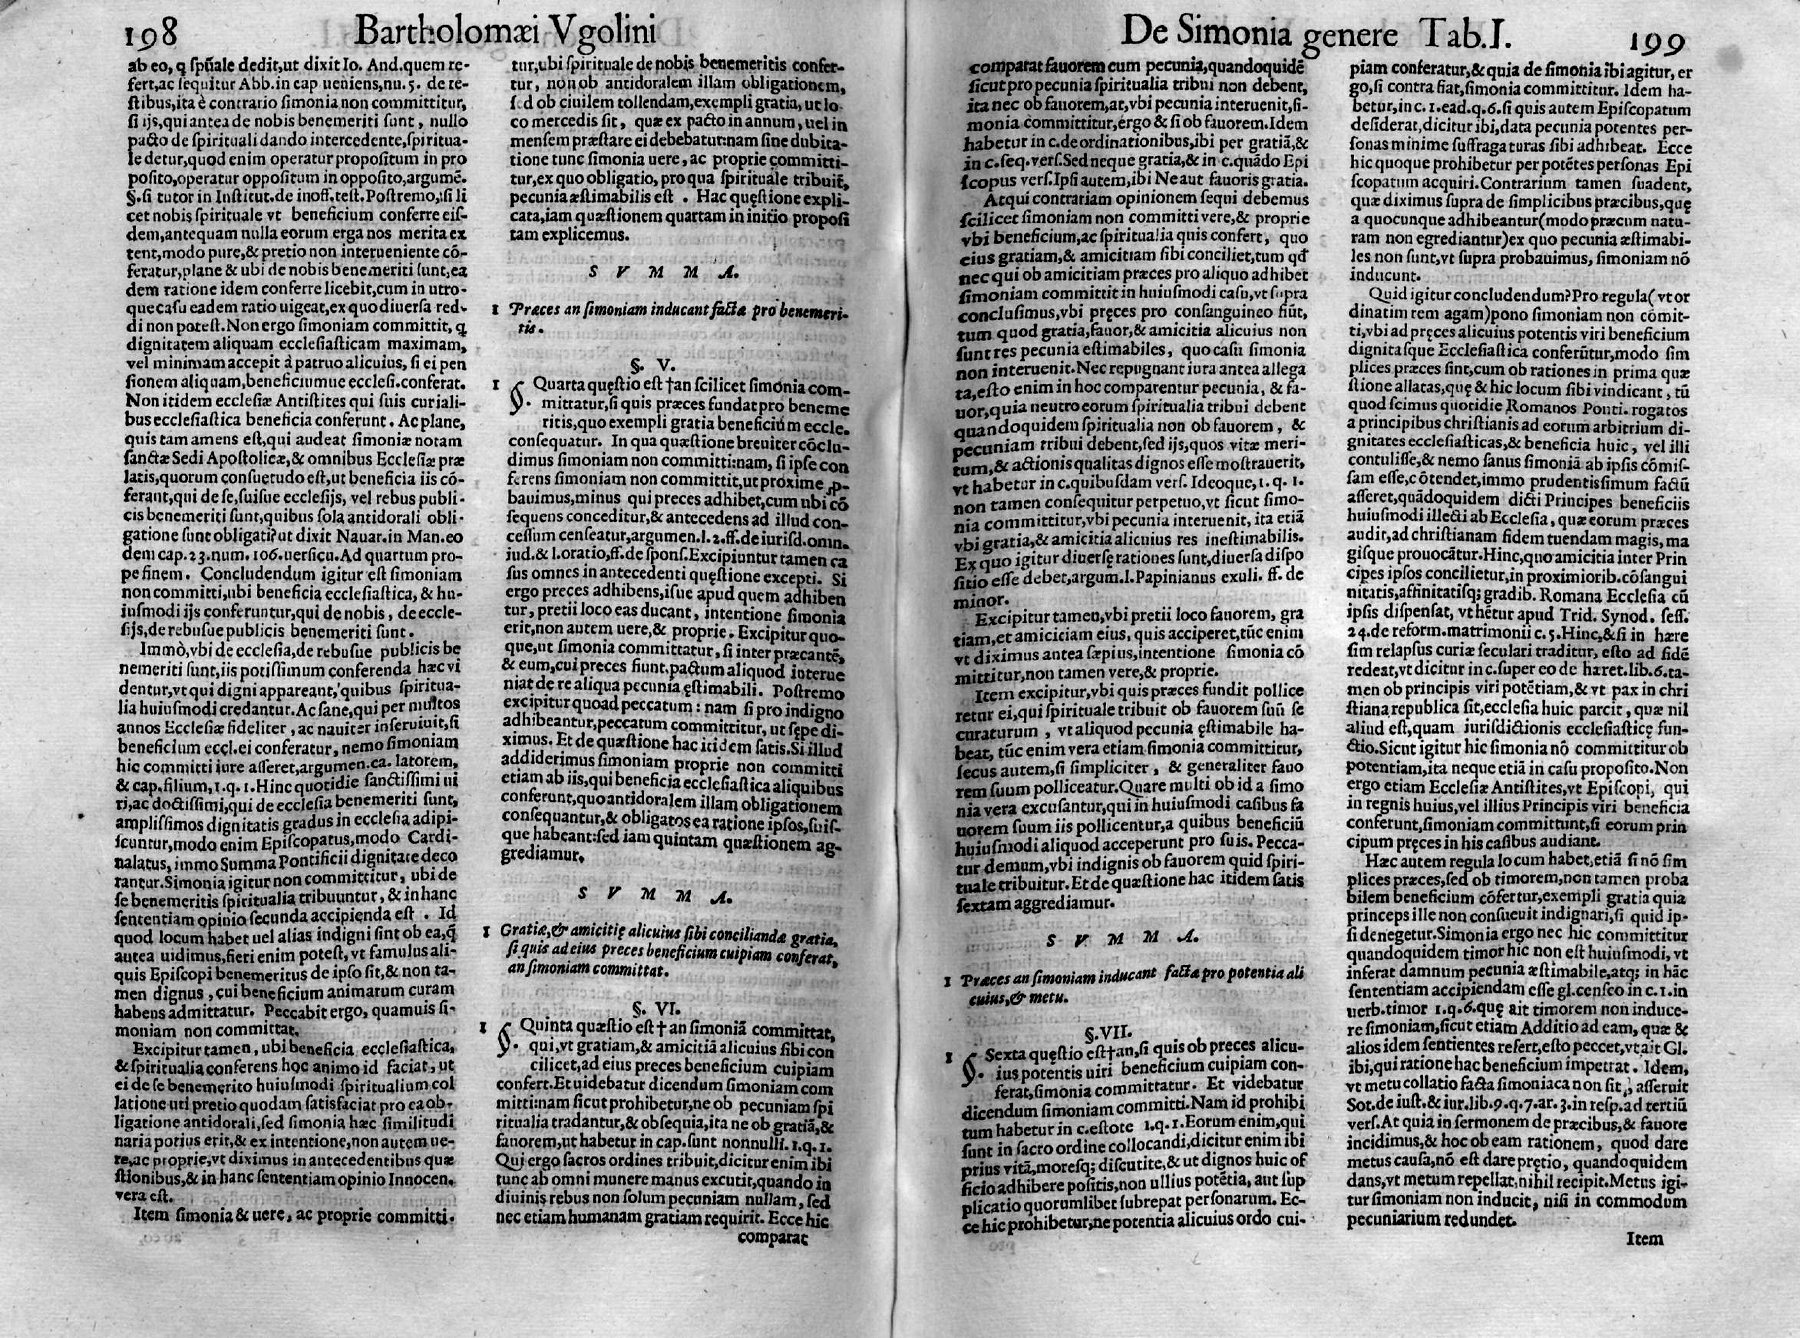 198 Bartholomæi Vgolini
ab eo, q spũale dedit, ut dixit Io. And. quem re-
fert, ac sequitur Abb. in cap ueniens, nu. 5. de te-
stibus, ita è contrario simonia non committitur,
si ijs, qui antea de nobis benemeriti sunt, nullo
pacto de spirituali dando intercedente, spiritua-
le detur, quod enim operatur propositum in pro
posito, operatur oppositum in opposito, argumẽ.
§. si tutor in Institut. de inoff. test. Postremo, si li
cet nobis spirituale vt beneficium conferre eis-
dem, antequam nulla eorum erga nos merita ex
tent, modo pure, & pretio non interueniente cõ-
feratur, plane & ubi de nobis benemeriti sunt, ea
dem ratione idem conferre licebit, cum in utro-
que casu eadem ratio uigeat, ex quo diuersa red-
di non potest. Non ergo simoniam committit, q
dignitatem aliquam ecclesiasticam maximam,
vel minimam accepit à patruo alicuius, si ei pen
sionem aliquam, beneficiumue ecclesi. conferat.
Non itidem ecclesiæ Antistites qui suis curiali-
bus ecclesiastica beneficia conferunt. Ac plane,
quis tam amens est, qui audeat simoniæ notam
sanctæ Sedi Apostolicæ, & omnibus Ecclesiæ præ
latis, quorum consuetudo est, ut beneficia iis cõ-
ferant, qui de se, suisue ecclesijs, vel rebus publi-
cis benemeriti sunt, quibus sola antidorali obli-
gatione sunt obligati? ut dixit Nauar. in Man. eo
dem cap. 23. num. 106. uersicu. Ad quartum pro-
pe finem. Concludendum igitur est simoniam
non committi, ubi beneficia ecclesiastica, & hu-
iusmodi ijs conferuntur, qui de nobis, de eccle-
sijs, de rebusue publicis benemeriti sunt.
Immò, vbi de ecclesia, de rebusue publicis be
nemeriti sunt, iis potissimum conferenda hæc vi
dentur, vt qui digni appareant, quibus spiritua-
lia huiusmodi credantur. Ac sane, qui per multos
annos Ecclesiæ fideliter, ac nauiter inseruiuit, si
beneficium eccl. ei conferatur, nemo simoniam
hic committi iure asseret, argumen. ca. latorem,
& cap. filium, 1. q. 1. Hinc quotidie sanctissimi ui
ri, ac doctissimi, qui de ecclesia benemeriti sunt,
amplissimos dignitatis gradus in ecclesia adipi-
scuntur, modo enim Episcopatus, modo Cardi-
nalatus, immo Summa Pontificii dignitate deco
rantur. Simonia igitur non committitur, ubi de
se benemeritis spiritualia tribuuntur, & in hanc
sententiam opinio secunda accipienda est. Id
quod locum habet uel alias indigni sint ob ea, q̃
autea uidimus, fieri enim potest, vt famulus ali-
quis Episcopi benemeritus de ipso sit, & non ta-
men dignus, cui beneficium animarum curam
habens admittatur. Peccabit ergo, quamuis si-
moniam non committat.
Excipitur tamen, ubi beneficia ecclesiastica,
& spiritualia conferens hoc animo id faciat, ut
ei de se benemerito huiusmodi spiritualium col
latione uti pretio quodam satisfaciat pro ea ob-
ligatione antidorali, sed simonia hæc similitudi
naria potius erit, & ex intentione, non autem ue-
re, ac proprie, vt diximus in antecedentibus quæ
stionibus, & in hanc sententiam opinio Innocen.
vera est.
Item simonia & uere, ac proprie committi-
tur, ubi spirituale de nobis benemeritis confer-
tur, non ob antidoralem illam obligationem,
sed ob ciuilem tollendam, exempli gratia, ut lo-
co mercedis sit, quæ ex pacto in annum, uel in
mensem præstare ei debebatur: nam sine dubita-
tione tunc simonia uere, ac proprie committi-
tur, ex quo obligatio, pro qua spirituale tribuit̃,
pecunia æstimabilis est. Hac quęstione expli-
cata, iam quæstionem quartam in initio proposi
tam explicemus.
S V M M A.
1 Præces an simoniam inducant factæ pro benemeri-
tis.
§. V.
1 §. Quarta quęstio est † an scilicet simonia com-
mittatur, si quis præces fundat pro beneme
ritis, quo exempli gratia beneficiũm eccle.
consequatur. In qua quæstione breuiter cõclu-
dimus simoniam non committi: nam, si ipse con
ferens simoniam non committit, ut proxime p-
bauimus, minus qui preces adhibet, cum ubi cõ
sequens conceditur, & antecedens ad illud con-
cessum censeatur, argumen. l. 2. ff. de iurisd. omn.
iud. & l. oratio, ff. de spons. Excipiuntur tamen ca
sus omnes in antecedenti quęstione excepti. Si
ergo preces adhibens, isue apud quem adhiben
tur, pretii loco eas ducant, intentione simonia
erit, non autem uere, & proprie. Excipitur quo-
que, ut simonia committatur, si inter præcantẽ,
& eum, cui preces fiunt, pactum aliquod interue
niat de re aliqua pecunia ęstimabili. Postremo
excipitur quoad peccatum: nam si pro indigno
adhibeantur, peccatum committitur, ut sępe di-
ximus. Et de quæstione hac itidem satis. Si illud
addiderimus simoniam proprie non committi
etiam ab iis, qui beneficia ecclesiastica aliquibus
conferunt, quo antidoralem illam obligationem
consequantur, & obligatos ea ratione ipsos, suis-
que habeant: sed iam quintam quæstionem ag-
grediamur.
S V M M A.
1 Gratiæ, & amicitię alicuius sibi conciliandæ gratia,
si quis ad eius preces beneficium cuipiam conferat,
an simoniam committat.
§. VI.
1 §. Quinta quæstio est † an simoniã committat,
qui, vt gratiam, & amicitiã alicuius sibi con
cilicet, ad eius preces beneficium cuipiam
confert. Et uidebatur dicendum simoniam com
mitti: nam sicut prohibetur, ne ob pecuniam spi
ritualia tradantur, & obsequia, ita ne ob gratiã, &
fauorem, ut habetur in cap. sunt nonnulli. 1. q. 1.
Qui ergo sacros ordines tribuit, dicitur enim ibi
tunc ab omni munere manus excutit, quando in
diuinis rebus non solum pecuniam nullam, sed
nec etiam humanam gratiam requirit. Ecce hic
comparat
De Simonia genere Tab. I. 199
comparat fauorem cum pecunia, quandoquidẽ
sicut pro pecunia spiritualia tribui non debent,
ita nec ob fauorem, at, vbi pecunia interuenit, si-
monia committitur, ergo & si ob fauorem. Idem
habetur in c. de ordinationibus, ibi per gratiã, &
in c. seq. vers. Sed neque gratia, & in c. quãdo Epi
scopus vers. Ipsi autem, ibi Ne aut fauoris gratia.
Atqui contrariam opinionem sequi debemus
scilicet simoniam non committi vere, & proprie
vbi beneficium, ac spiritualia quis confert, quo
eius gratiam, & amicitiam sibi conciliet, tum qđ
nec qui ob amicitiam præces pro aliquo adhibet
simoniam committit in huiusmodi casu, vt supra
conclusimus, vbi pręces pro consanguineo fiũt,
tum quod gratia, fauor, & amicitia alicuius non
sunt res pecunia estimabiles, quo casu simonia
non interuenit. Nec repugnant iura antea allega
ta, esto enim in hoc comparentur pecunia, & fa-
uor, quia neutro eorum spiritualia tribui debent
quandoquidem spiritualia non ob fauorem, &
pecuniam tribui debent, sed ijs, quos vitæ meri-
tum, & actionis qualitas dignos esse mostrauerit,
vt habetur in c. quibusdam vers. Ideoque, 1. q. 1.
non tamen consequitur perpetuo, vt sicut simo-
nia committitur, vbi pecunia interuenit, ita etiã
vbi gratia, & amicitia alicuius res inestimabilis.
Ex quo igitur diuersę rationes sunt, diuersa dispo
sitio esse debet, argum. l. Papinianus exuli. ff. de
minor.
Excipitur tamen, vbi pretii loco fauorem, gra
tiam, et amiciciam eius, quis acciperet, tũc enim
vt diximus antea sæpius, intentione simonia cõ
mittitur, non tamen vere, & proprie.
Item excipitur, vbi quis præces fundit pollice
retur ei, qui spirituale tribuit ob fauorem suũ se
curaturum, vt aliquod pecunia ęstimabile ha-
beat, tũc enim vera etiam simonia committitur,
secus autem, si simpliciter, & generaliter fauo
rem suum polliceatur. Quare multi ob id a simo
nia vera excusantur, qui in huiusmodi casibus fa
uorem suum iis pollicentur, a quibus beneficiũ
huiusmodi aliquod acceperunt pro suis. Pecca-
tur demum, vbi indignis ob fauorem quid spiri-
tuale tribuitur. Et de quæstione hac itidem satis
sextam aggrediamur.
S V M M A.
1 Præces an simoniam inducant factæ pro potentia ali
cuius, & metu.
§. VII.
1 §. Sexta quęstio est † an, si quis ob preces alicu-
ius potentis uiri beneficium cuipiam con-
ferat, simonia committatur. Et videbatur
dicendum simoniam committi. Nam id prohibi
tum habetur in c. estote 1. q. 1. Eorum enim, qui
sunt in sacro ordine collocandi, dicitur enim ibi
prius vitã, moresq; discutite, & ut dignos huic of
ficio adhibere positis, non ullius potẽtia, aut sup
plicatio quorumlibet subrepat personarum. Ec-
ce hic prohibetur, ne potentia alicuius ordo cui-
piam conferatur, & quia de simonia ibi agitur, er
go, si contra fiat, simonia committitur. Idem ha-
betur, in c. 1. ead. q. 6. si quis autem Episcopatum
desiderat, dicitur ibi, data pecunia potentes per-
sonas minime suffragaturas sibi adhibeat. Ecce
hic quoque prohibetur per potẽtes personas Epi
scopatum acquiri. Contrarium tamen suadent,
quæ diximus supra de simplicibus præcibus, quę
a quocunque adhibeantur (modo præcum natu-
ram non egrediantur) ex quo pecunia æstimabi-
les non sunt, vt supra probauimus, simoniam nõ
inducunt.
Quid igitur concludendum? Pro regula (vt or
dinatim rem agam) pono simoniam non cõmit-
ti, vbi ad pręces alicuius potentis viri beneficium
dignitasque Ecclesiastica conferũtur, modo sim
plices præces sint, cum ob rationes in prima quæ
stione allatas, quę & hic locum sibi vindicant, tũ
quod scimus quotidie Romanos Ponti. rogatos
a principibus christianis ad eorum arbitrium di-
gnitates ecclesiasticas, & beneficia huic, vel illi
contulisse, & nemo sanus simoniã ab ipsis cõmis-
sam esse, cõtendet, immo prudentissimum factũ
asseret, quãdoquidem dicti Principes beneficiis
huiusmodi illecti ab Ecclesia, quæ eorum præces
audit, ad christianam fidem tuendam magis, ma
gisque prouocãtur. Hinc, quo amicitia inter Prin
cipes ipsos concilietur, in proximiorib. cõsangui
nitatis, affinitatisq; gradib. Romana Ecclesia cũ
ipsis dispensat, vt hẽtur apud Trid. Synod. sess.
24. de reform. matrimonii c. 5. Hinc, & si in hære
sim relapsus curiæ seculari traditur, esto ad fidẽ
redeat, vt dicitur in c. super eo de hæret. lib. 6. ta-
men ob principis viri potẽtiam, & vt pax in chri
stiana republica sit, ecclesia huic parcit, quæ nil
aliud est, quam iurisdictionis ecclesiasticę fun-
ctio. Sicut igitur hic simonia nõ committitur ob
potentiam, ita neque etiã in casu proposito. Non
ergo etiam Ecclesiæ Antistites, vt Episcopi, qui
in regnis huius, vel illius Principis viri beneficia
conferunt, simoniam committunt, si eorum prin
cipum pręces in his casibus audiant.
Hæc autem regula locum habet, etiã si nõ sim
plices præces, sed ob timorem, non tamen proba
bilem beneficium cõfertur, exempli gratia quia
princeps ille non consueuit indignari, si quid ip-
si denegetur. Simonia ergo nec hic committitur
quandoquidem timor hic non est huiusmodi, vt
inferat damnum pecunia æstimabile, atq; in hãc
sententiam accipiendam esse gl. censeo in c. 1. in
uerb. timor 1. q. 6. quę ait timorem non induce-
re simoniam, sicut etiam Additio ad eam, quæ &
alios idem sentientes refert, esto peccet, vt ait Gl.
ibi, qui ratione hac beneficium impetrat. Idem,
vt metu collatio facta simoniaca non sit, asseruit
Sot. de iust. & iur. lib. 9. q. 7. ar. 3. in resp. ad tertiũ
vers. At quia in sermonem de præcibus, & fauore
incidimus, & hoc ob eam rationem, quod dare
metus causa, nõ est dare prętio, quandoquidem
dans, vt metum repellat, nihil recipit. Metus igi-
tur simoniam non inducit, nisi in commodum
pecuniarium redundet.
Item